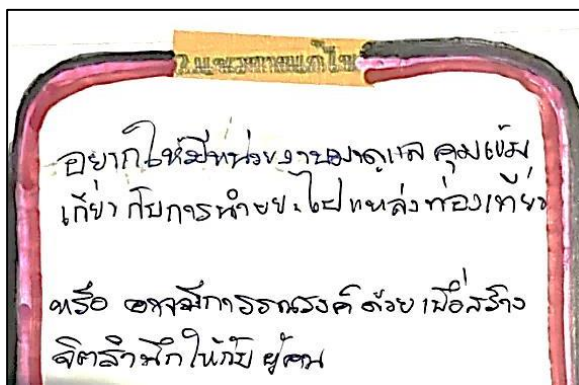 2.แนวทางแก้ไข
อยากให้มีหน่วยงานมาดูแล คุมเข้ม
เกี่ยวกับการนำขยะไปแหล่งท่องเที่ยว
หรือ อาจมีการรณรงค์ด้วย เพื่อสร้าง
จิตสำนึกให้กับ ผู้คน